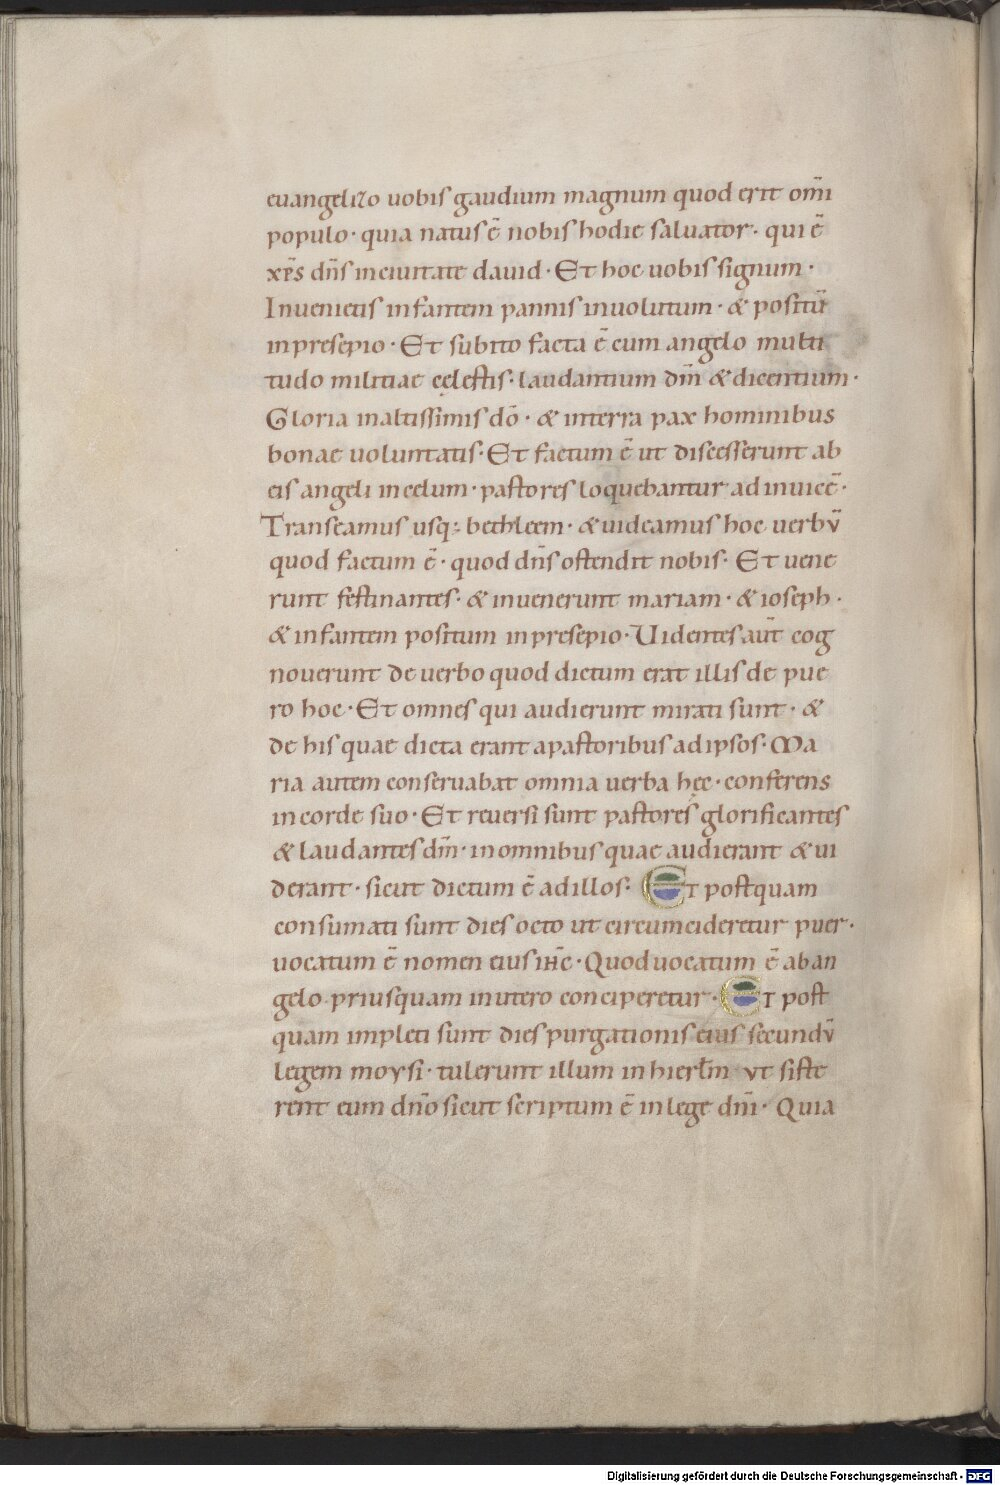 euangelizo uobis gaudium magnum quod erit om̄i
populo · quia natus ē nobis hodie saluator · qui ē
xp̄s dn̄s in ciuitate dauid · Et hoc uobis signum ·
Inuenietis infantem pannis inuolutum · & positū
in presepio · Et subito facta ē cum angelo multi
tudo militiae cęlestis · laudantium dm̄ & dicentium ·
Gloria in altissimis dō · & in terra pax hominibus
bonae uoluntatis · Et factum ē ut discesserunt ab
eis angeli in celum · pastores loquebantur ad inuicē ·
Transeamus usq; bethleem · & uideamus hoc uerbv̄
quod factum ē · quod dn̄s ostendit nobis · Et uene
runt festinantes · & inuenerunt mariam · & ioseph ·
& infantem positum in presepio · Uidentes aut̄ cog
nouerunt de uerbo quod dictum erat illis de pue
ro hoc · Et omnes qui audierunt mirati sunt · &
de his quae dicta erant a pastoribus ad ipsos · Ma
ria autem conseruabat omnia uerba hęc · conferens
in corde suo · Et reuersi sunt pastores glorificantes
& laudantes dm̄ · in omnibus quae audierant & ui
derant · sicut dictum ē ad illos · Et postquam
consumati sunt dies octo ut circumcideretur puer ·
uocatum ē nomen eius ihc̄ · Quod uocatum ē ab an
gelo priusquam in utero conciperetur · Et post
quam impleti sunt dies purgationis eius secundv̄
legem moysi · tulerunt illum in hierl̄m vt siste
rent eum dn̄o sicut scriptum ē in lege dn̄i · Quia
Digitalisierung gefördert durch die Deutsche Forschungsgemeinschaft - DFG